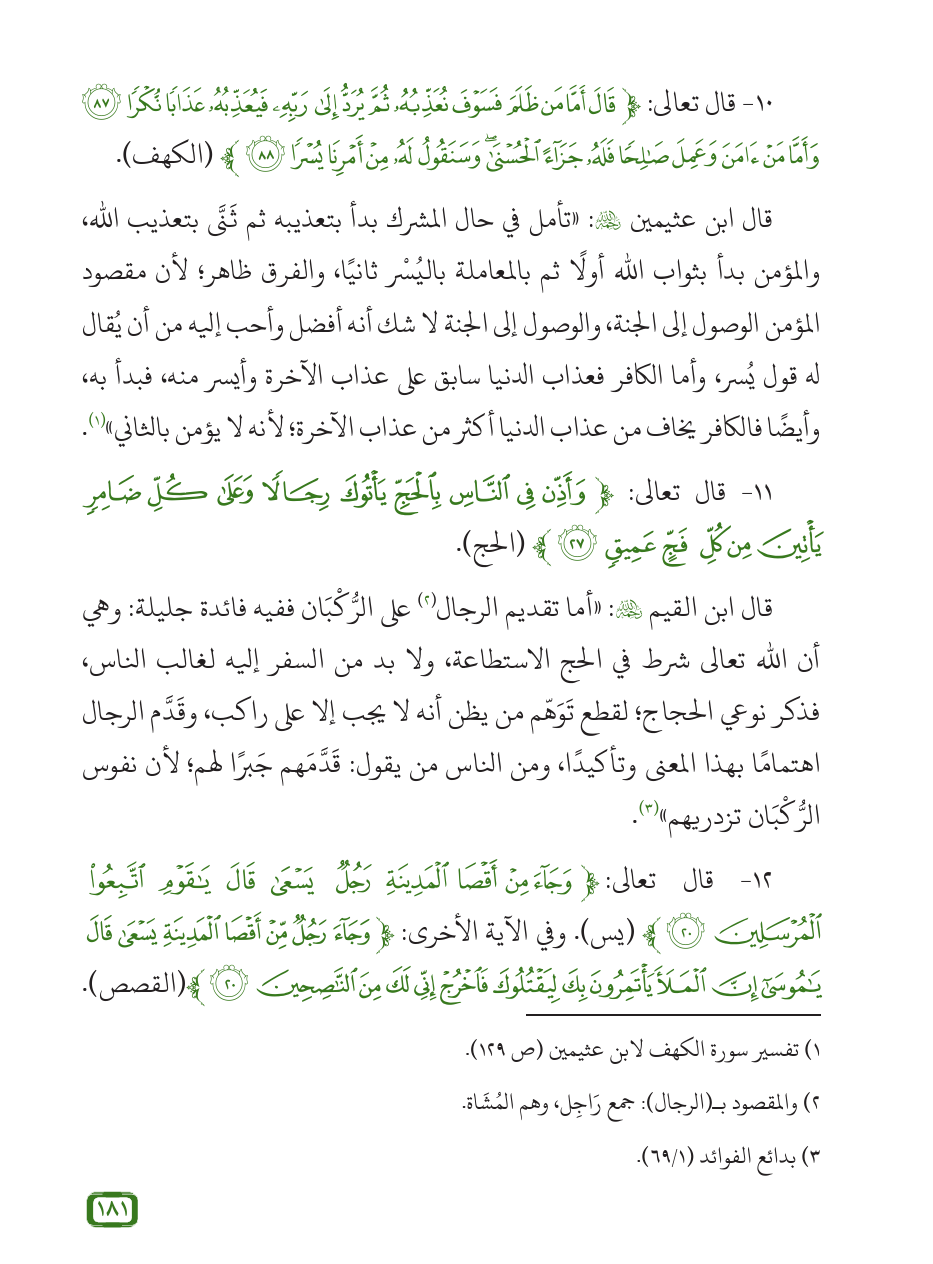 ١٠- قال تعالى: ﴿ قَالَ أَمَّا مَن ظَلَمَ فَسَوْفَ نُعَذِّبُهُۥ ثُمَّ يُرَدُّ إِلَىٰ رَبِّهِۦ فَيُعَذِّبُهُۥ عَذَابًا نُّكْرًا ٨٧
وَأَمَّا مَنْ ءَامَنَ وَعَمِلَ صَـٰلِحًا فَلَهُۥ جَزَآءً ٱلْحُسْنَىٰ ۖ وَسَنَقُولُ لَهُۥ مِنْ أَمْرِنَا يُسْرًا ٨٨ ﴾ (الكهف).
قال ابن عثيمين ﵀: «تأمل في حال المشرك بدأ بتعذيبه ثم ثَنَّى بتعذيب الله،
والمؤمن بدأ بثواب الله أولًا ثم بالمعاملة باليُسْر ثانيًا، والفرق ظاهر؛ لأن مقصود
المؤمن الوصول إلى الجنة، والوصول إلى الجنة لا شك أنه أفضل وأحب إليه من أن يُقال
له قول يُسر، وأما الكافر فعذاب الدنيا سابق على عذاب الآخرة وأيسر منه، فبدأ به،
وأيضًا فالكافر يخاف من عذاب الدنيا أكثر من عذاب الآخرة؛ لأنه لا يؤمن بالثاني»(١).
١١- قال تعالى: ﴿ وَأَذِّن فِى ٱلنَّاسِ بِٱلْحَجِّ يَأْتُوكَ رِجَالًا وَعَلَىٰ كُلِّ ضَامِرٍ
يَأْتِينَ مِن كُلِّ فَجٍّ عَمِيقٍ ٢٧ ﴾ (الحج).
قال ابن القيم ﵀: «أما تقديم الرجال(٢) على الرُّكْبَان ففيه فائدة جليلة: وهي
أن الله تعالى شرط في الحج الاستطاعة، ولا بد من السفر إليه لغالب الناس،
فذكر نوعي الحجاج؛ لقطع تَوَهّم من يظن أنه لا يجب إلا على راكب، وقَدَّم الرجال
اهتمامًا بهذا المعنى وتأكيدًا، ومن الناس من يقول: قَدَّمَهم جَبرًا لهم؛ لأن نفوس
الرُّكْبَان تزدريهم»(٣).
١٢- قال تعالى: ﴿ وَجَآءَ مِنْ أَقْصَا ٱلْمَدِينَةِ رَجُلٌ يَسْعَىٰ قَالَ يَـٰقَوْمِ ٱتَّبِعُوا۟
ٱلْمُرْسَلِينَ ٢٠ ﴾ (يس). وفي الآية الأخرى: ﴿ وَجَآءَ رَجُلٌ مِّنْ أَقْصَا ٱلْمَدِينَةِ يَسْعَىٰ قَالَ
يَـٰمُوسَىٰٓ إِنَّ ٱلْمَلَأَ يَأْتَمِرُونَ بِكَ لِيَقْتُلُوكَ فَٱخْرُجْ إِنِّى لَكَ مِنَ ٱلنَّـٰصِحِينَ ٢٠ ﴾ (القصص).
١) تفسير سورة الكهف لابن عثيمين (ص ١٢٩).
٢) والمقصود بـ(الرجال): جمع رَاجِل، وهم المُشَاة.
٣) بدائع الفوائد (١/٦٩).
١٨١